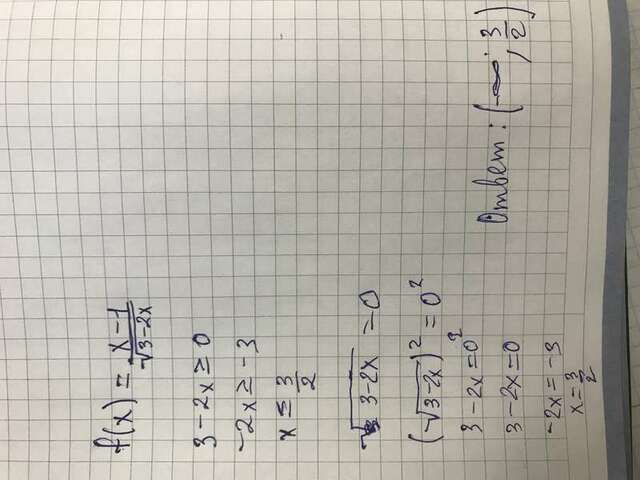 f(x) = x-1 / √3-2x
3-2x ≥ 0
-2x ≥ -3
x ≤ 3/2
√3-2x = 0
(√3-2x)² = 0²
3-2x=0²
3-2x=0
-2x=-3
x=3/2
Ответ: (-∞; 3/2)